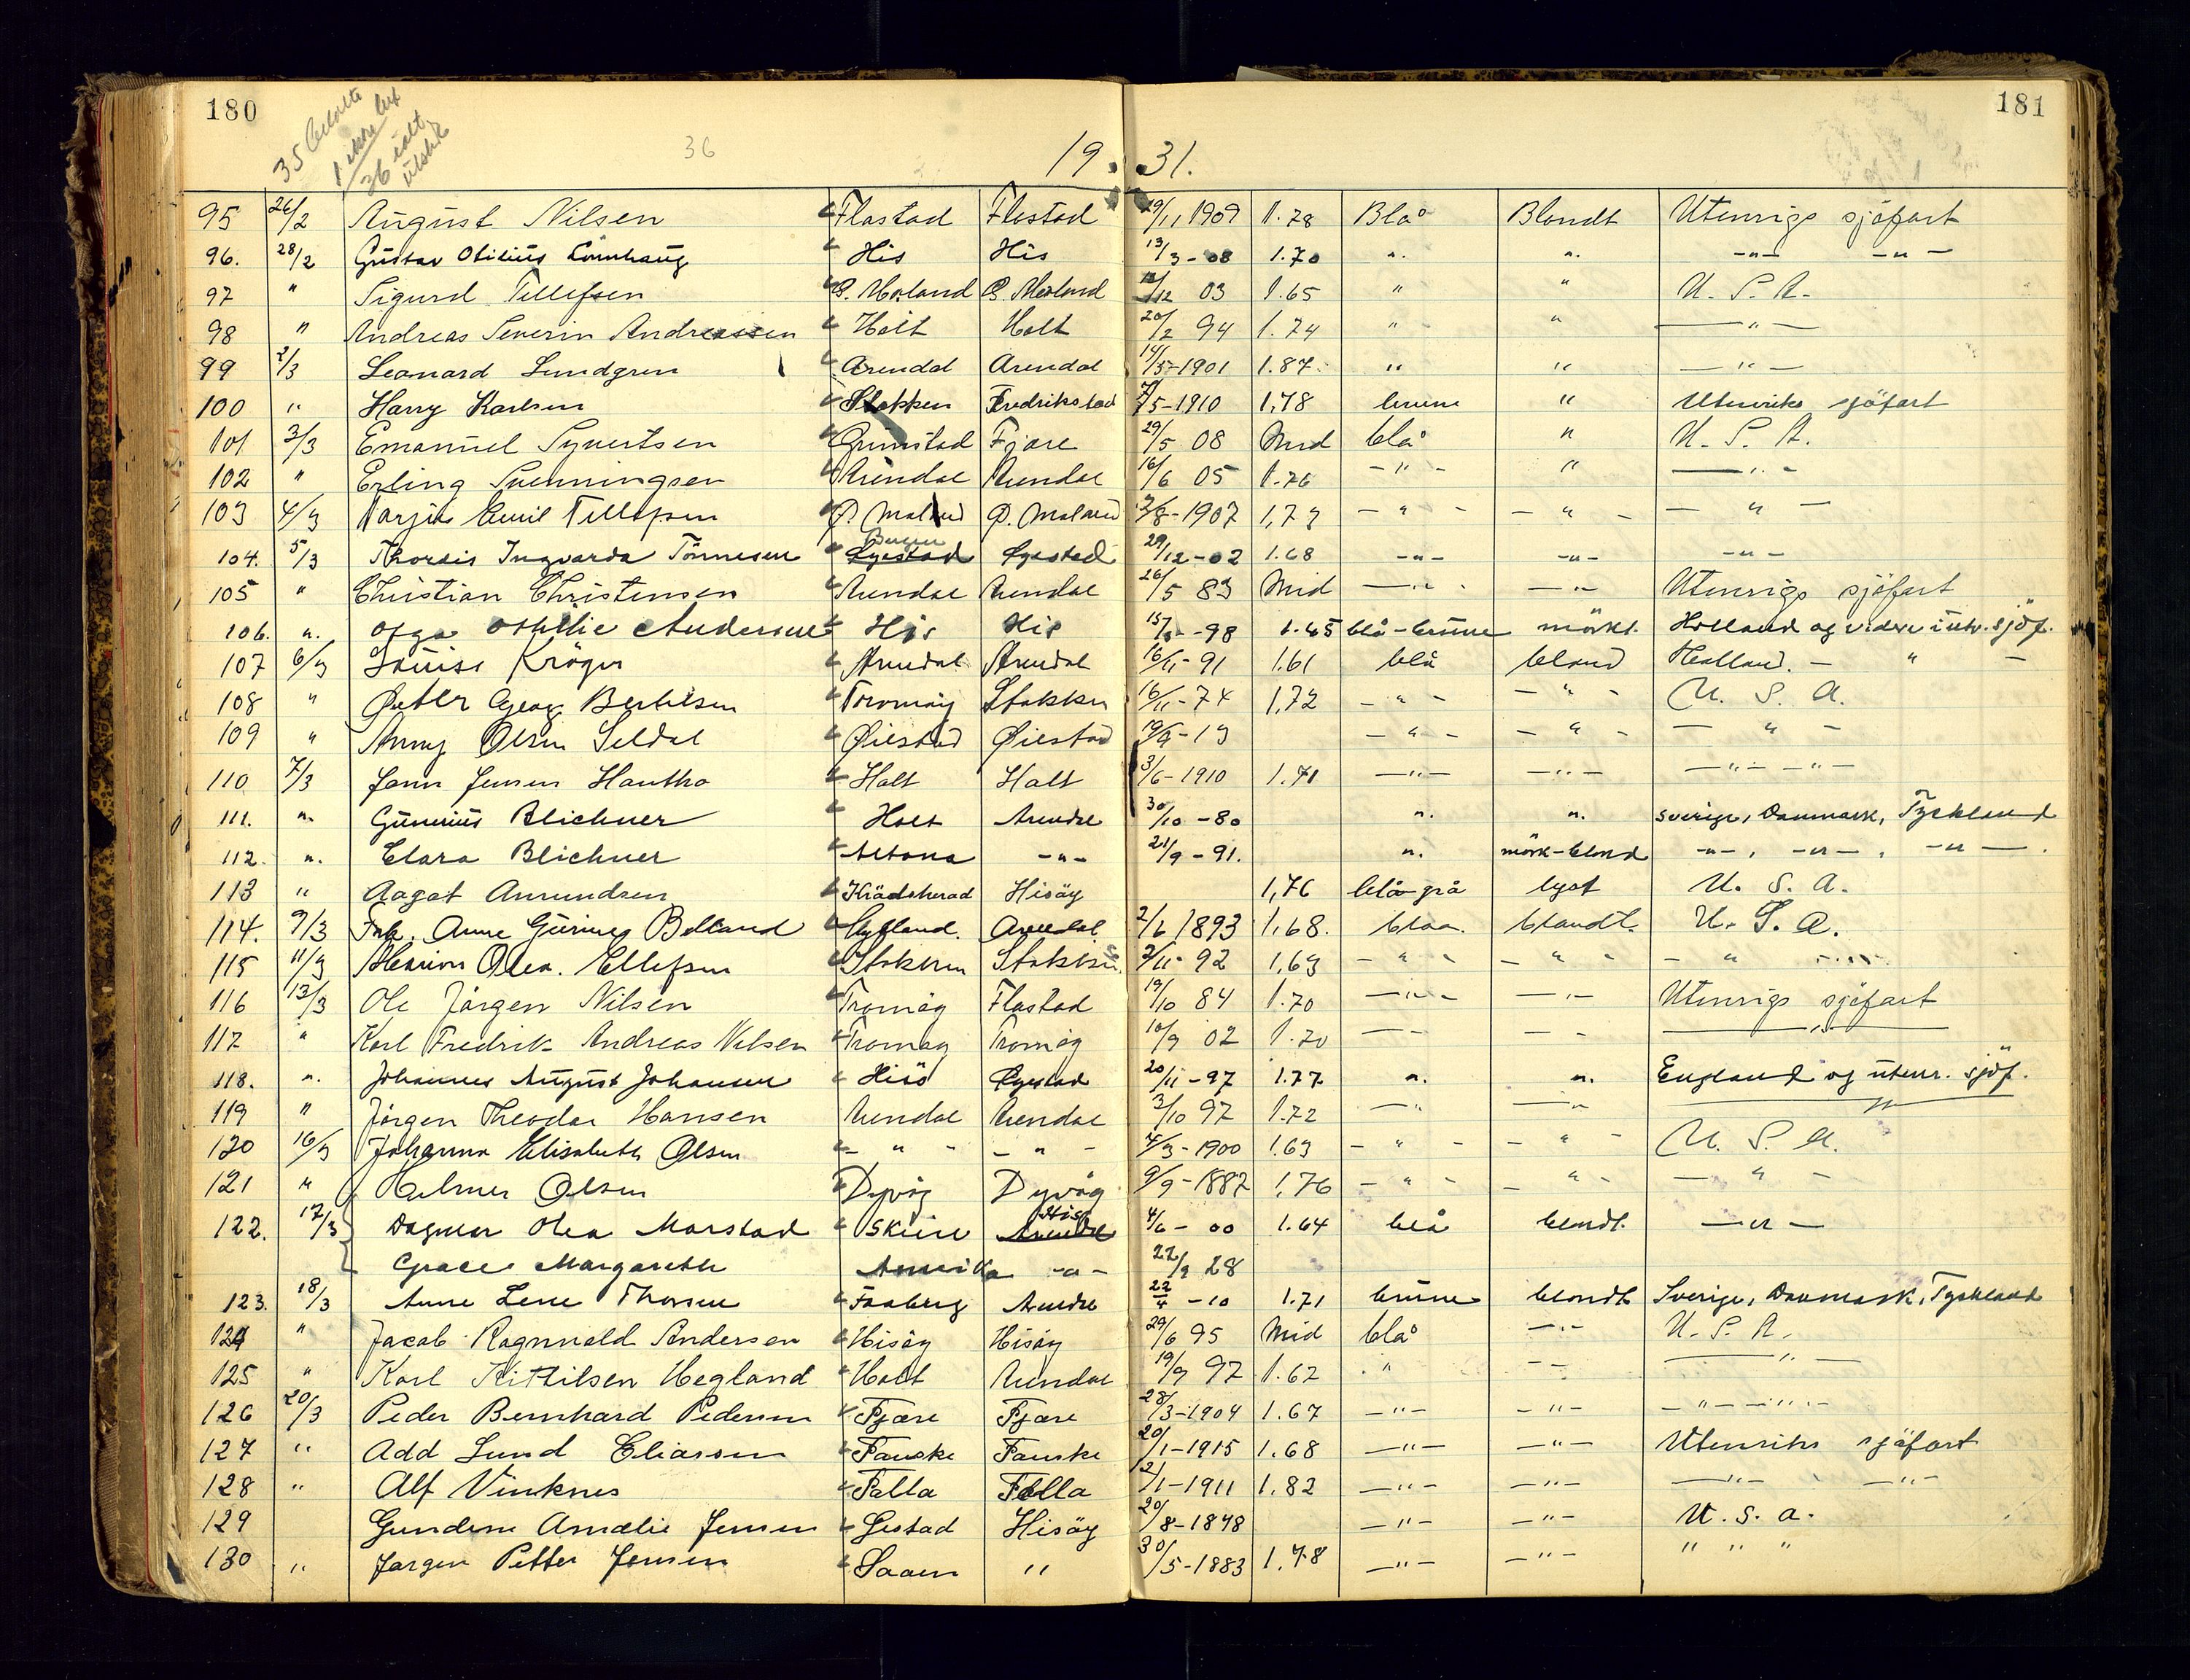 180
181
35
36
36
19 31.
95 26/2 August Nilsen Flostad Flostad 29/11 1909 1.78 Blå Blondt Utenrigs sjöfart
96. 28/2 Gustav Otilius His His 13/3-08 1.70 ". ". -"- -"-
97 " Sigurd Tellefsen Ö. Moland Ö. Moland /12 03 1.65 " " U. S. A.
98 " Andreas Severin Andreassen Holt Holt 20/2 94 1.74 " " —"—
99 2/3 Leonard Lundgren Arendal Arendal 14/5-1901 1.87. " " —"—
100 " Harry Karlsen Stokken Fredrikstad 7/5-1910 1,78 brune " Utenriks sjöfart
101 3/3 Emanuel Syvertsen Grimstad Fjære 29/5 08 Mid blå " U. S. A.
102 " Erling Svenningsen Arendal Arendal 16/6 05 1.76 -"- " —"-
103 4/3 Tarjei Emil Tellefsen Ø. Moland Ø. Moland 3/8-1907 1,73 -"- -"- -"-
104. 5/3 Thordis Ingvarda Tönnesen Øyestad Bergen Øyestad 29/12-02 1.68 -"- -"- -"-
105 " Christian Christensen Arendal Arendal 26/5 83 Mid —"- —"- Utenrigs sjöfart
106. ". Olga Othilie Andersen His His 15/-98 1.65 blå-brune mörkt. Holland og videre utr. sjöf.
107 6/3 Louise Kröger Arendal Arendal 16/11-91 1.61 blå blond Holland. - " -
108 " Peter Georg Bertelsen Tromöy Stokken 16/11-74 1,72 -"- -"- U. S. A.
109 " Anny Olsen Seldal Øiestad Øiestad 19/9-13 -"- -"- -"-
110 7/3 Jenn Jensen Hauthø Holt Holt 3/6-1910 1.71 —"— —"— —"— —"—
111. ". Gunerius Blichner Holt Arendal 30/10-80 ". ". Sverige, Danmark, Tyskland
112. ". Clara Blichner Altona -"- 21/9-91. ". mörk-blond -"-, -"-, -"-.
113 " Aagot Amundsen Krödsherad Hisöy 1,76 blå grå lyst U. S. A.
114. 9/3 Frk. Anne Gurine Belland Gyland. Arendal. 2/6 1893 1,68. blaa. blondt. U. S. A.
115 11/3 Marion Olea. Ellefsen Stokken Stokken 2/11-92 1,63 -"- -"- -"-
116 13/3 Ole Jörgen Nilsen Tromöy Flostad 19/10 84 1.70 —"— —"— Utenrigs sjöfart
117 " Karl Fredrik Andreas Nilsen Tromöy Tromöy 10/9 02 1.70 — - — - —"—
118. ". Johannes August Johansen Hisö Øyestad 20/11-97 1.77. ". ". England og utenr. sjöf.
119 " Jörgen Theodor Hansen Arendal Arendal 3/10 97 1.72 —"- —"- —"—
120 16/3 Johanna Elisabeth Olsen -"- -"- 4/3-1900 1.63 -"- -"- U. S. A.
121 " Hilmer Olsen Dypvåg Dypvåg 9/9-1882 1,76 -"- -"- -"-
122. 17/3 Dagmar Olea Marstad Skien Arendal His 4/6-00 1.64 blå blondt. -"-
Grace Margareth Amerika -"- 22/9 28
123. 18/3 Anne Lene Thorsen Faaberg Arendal 22/4-10 1.71 brune blondt Sverige, Danmark, Tyskland
124 " Jacob Ragnvald Andersen Hisöy Hisöy 29/6 95 Mid blå —"- U. S. A.
125 " Karl Kittilsen Hegland Holt Arendal 19/9 97 1.62 " - - —"—
126 20/3 Peder Bernhard Pedersen Fjære Fjære 28/3-1904 1.67 —"— —"— —"— —"—
127 " Add Lund Eliassen Fauske Fauske 20/1-1915 1.68 —"— —"— Utenriks sjöfart
128 " Alf Vinknes Falla Falla 2/1-1911 1.82 —"— —"— —"— —"—
129 Gundine Amalie Jensen Gestad Hisöy 20/8-1878 —"— —"— U. S. A.
130 " Jørgen Petter Jensen Saaen " 30/5-1883 1.78 —"— —"— " " "